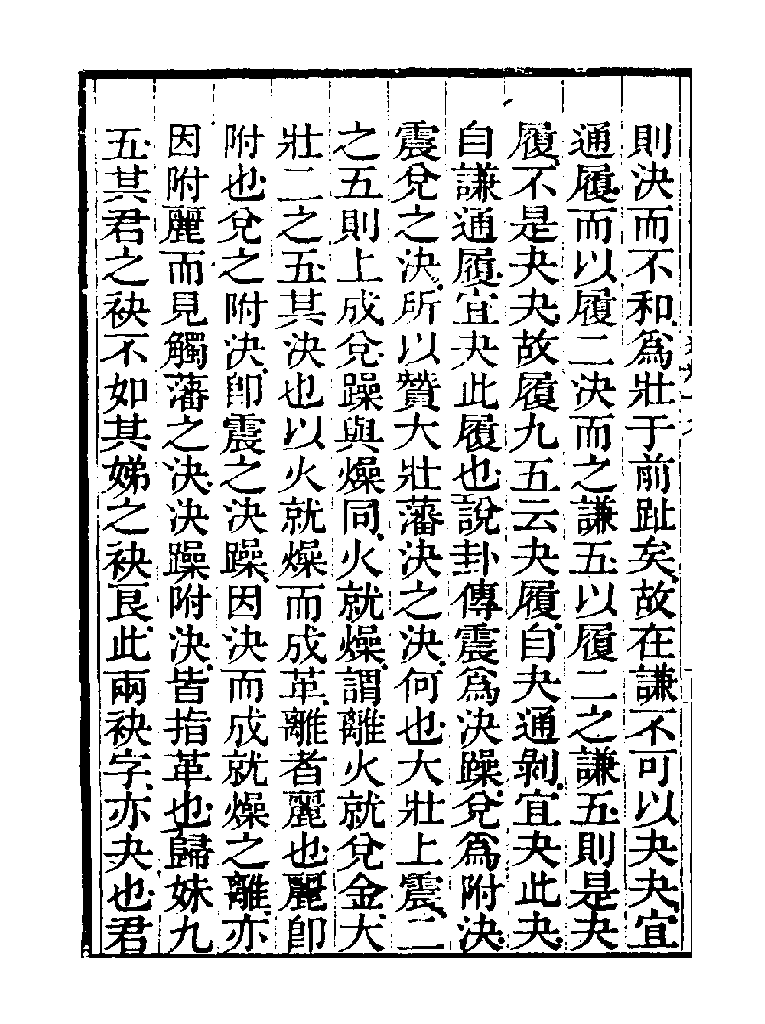 則決而不和爲壯于前趾矣故在謙不可以夬夬宜
通履而以履二決而之謙五以履二之謙五則是夬
履不是夬夬故履九五云夬履自夬通剝宜夬此夬
自謙通履宜夬此履也說卦傳震爲決躁兌爲附決
震兌之決所以贊大壯藩決之決何也大壯上震二
之五則上成兌躁與燥同火就燥謂離火就兌金大
壯二之五其決也以火就燥而成革離者麗也麗卽
附也兌之附決卽震之決躁因決而成就燥之離亦
因附麗而見觸藩之決決躁附決皆指革也歸妹九
五其君之袂不如其娣之袂艮此兩袂字亦夬也君